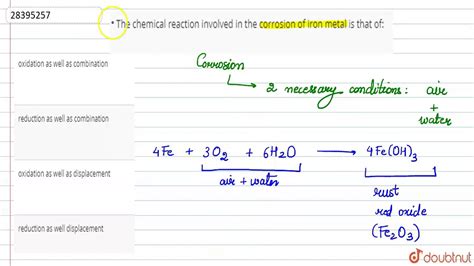 28395257
• The chemical reaction involved in the corrosion of iron metal is that of:
oxidation as well as combination
reduction as well as combination
oxidation as well as displacement
reduction as well displacement
Corrosion
2 necessary conditions: air
+
water
4Fe + 3O2 + 6H2O → 4Fe(OH)3
air + water
rust
red oxide
(Fe2O3)
doubtnut